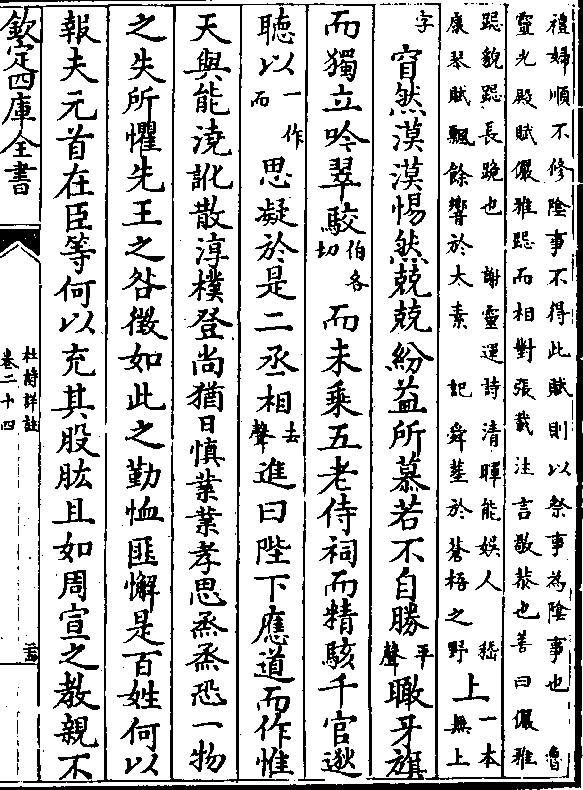 禮婦順不修陰事不得此賦則以祭事為陰事也 魯
靈光殿賦儼雅跽而相對張載注言敬恭也善曰儼雅
跽貌跽長跪也 謝靈運詩清暉能娛人 嵇
康琴賦飄餘響於大素 記舜葬於蒼梧之野
上一本無上
字窅然漠漠惕然兢兢紛益所慕若不自勝平聲瞰牙旗
而獨立吟翠駮伯各切而未乘五老侍祠而精駭千官逖
聽以一作而思凝於是二丞相去聲進曰陛下應道而作惟
天與能澆訛散淳樸登尚猶日慎業業孝思烝烝恐一物
之失所懼先王之咎徵如此之勤恤匪懈是百姓何以
報夫元首在臣等何以充其股肱且如周宣之教親不
欽定四庫全書
杜詩詳註
卷二十四